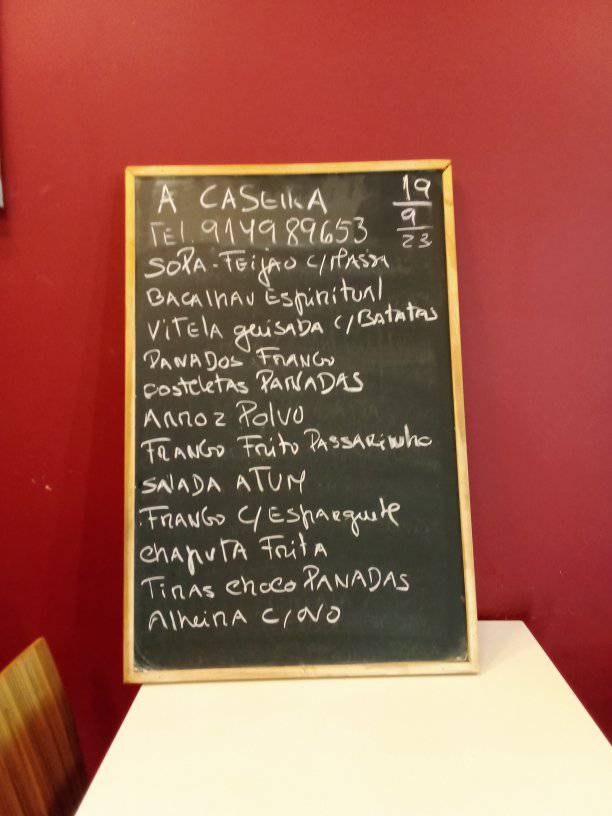 A CASEIRA
19
9
23
TEl. 914989653
SOPA - FEIJAO C/MASSA
BACALHAU ESPIRITUAL
VITELA guisADA C/BATATAS
PANADOS FRANGO
COSTELETAS PANADAS
ARROZ POLVO
FRANGO FRITO PASSARINHO
SALADA ATUM
FRANGO C/ESPARguete
CHAPUTA FRITA
TIRAS CHOCO PANADAS
AlHEIRA C/OVO